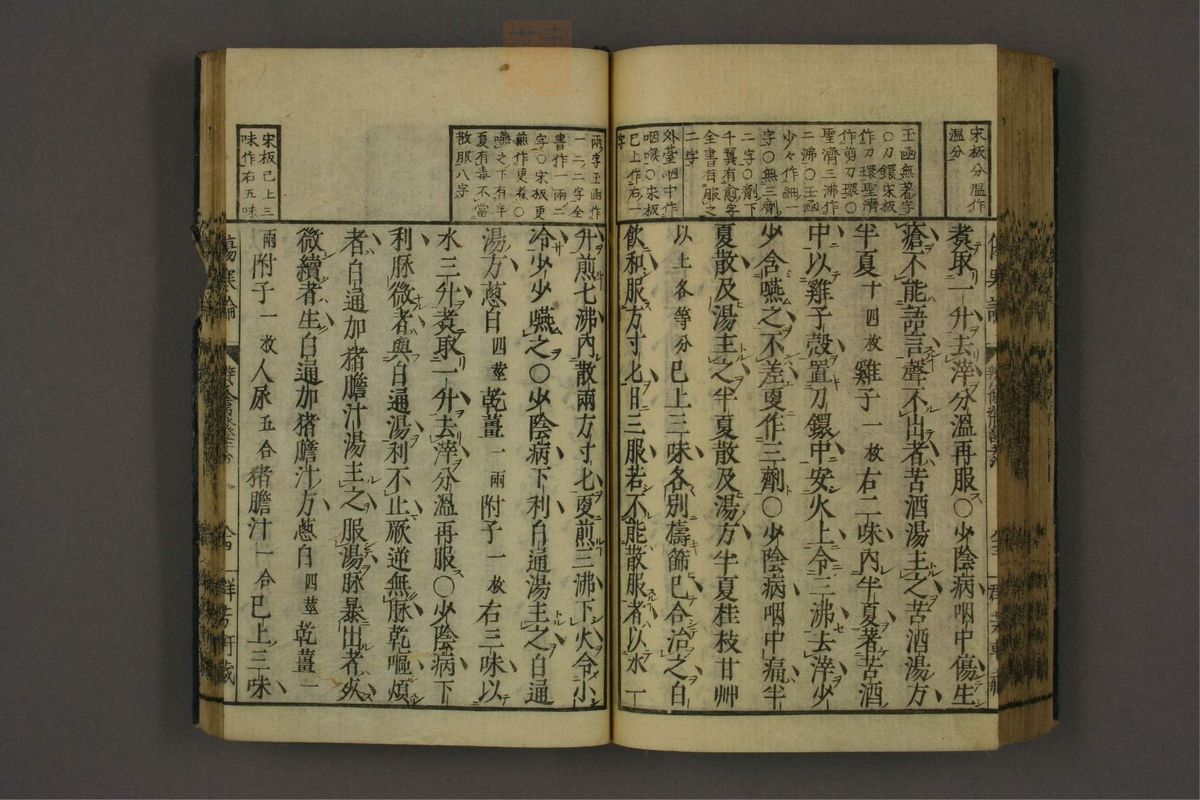 宋板分温作
温分
玉函無著字
○刀鐶宋板
作刀環聖濟
作剪刀環○
聖濟三沸作
二沸○玉函
少々作細一
字○無三劑
二字○劑下
千翼有愈字
全書有服之
二字
外臺咽中作
咽喉○宋板
已上作右一
字
煑取一升去滓分溫再服○少陰病咽中傷生
瘡不能語言聲不出者苦酒湯主之苦酒湯方
半夏十四枚雞子一枚右二味內半夏著苦酒
中以雞子殼置刀鐶中安火上令三沸去滓少
少含嚥之不差更作三劑○少陰病咽中痛半
夏散及湯主之半夏散及湯方半夏桂枝甘艸
以上各等分已上三味各別擣篩已合治之白
飮和服方寸匕日三服若不能散服者以水一
兩字玉函作
一二二字全
書作一兩二
字○宋板更
煎作更煮○
嚥之下有半
夏有毒不當
散服八字
宋板已上三
味作右五味
升煎七沸內散兩方寸匕更煎三沸下火令小
冷少少嚥之○少陰病下利白通湯主之白通
湯方蔥白四莖乾薑一兩附子一枚右三味以
水三升煑取一升去滓分溫再服○少陰病下
利脉微者與白通湯利不止厥逆無脉乾嘔煩
者白通加猪膽汁湯主之服湯脉暴出者死
微續者生白通加猪膽汁方蔥白四莖乾薑一
兩附子一枚人尿五合猪膽汁一合已上三味
傷寒論